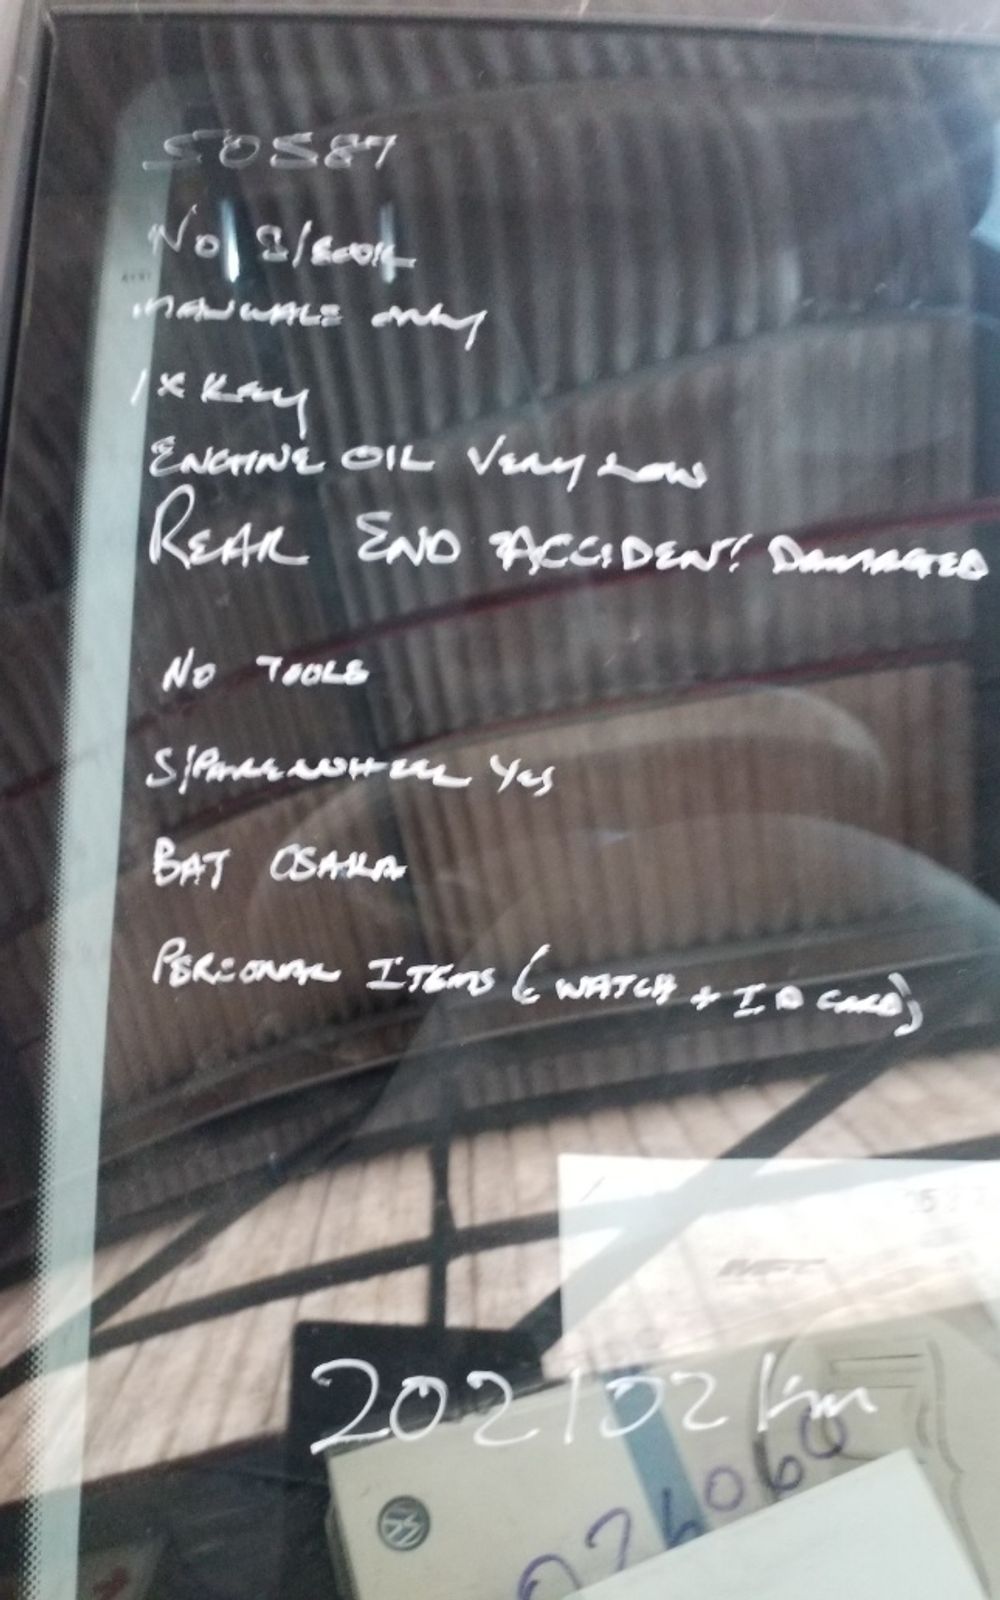 50587
No S/BOOK
MANUALE only
1 x Key
ENGINE OIL Very Low
REAR END ACCIDENT DAMAGED
NO TOOLS
S/PARE WHEEL Yes
BAT OSAKA
PERSONAL ITEMS (WATCH + ID CARD)
202102 km